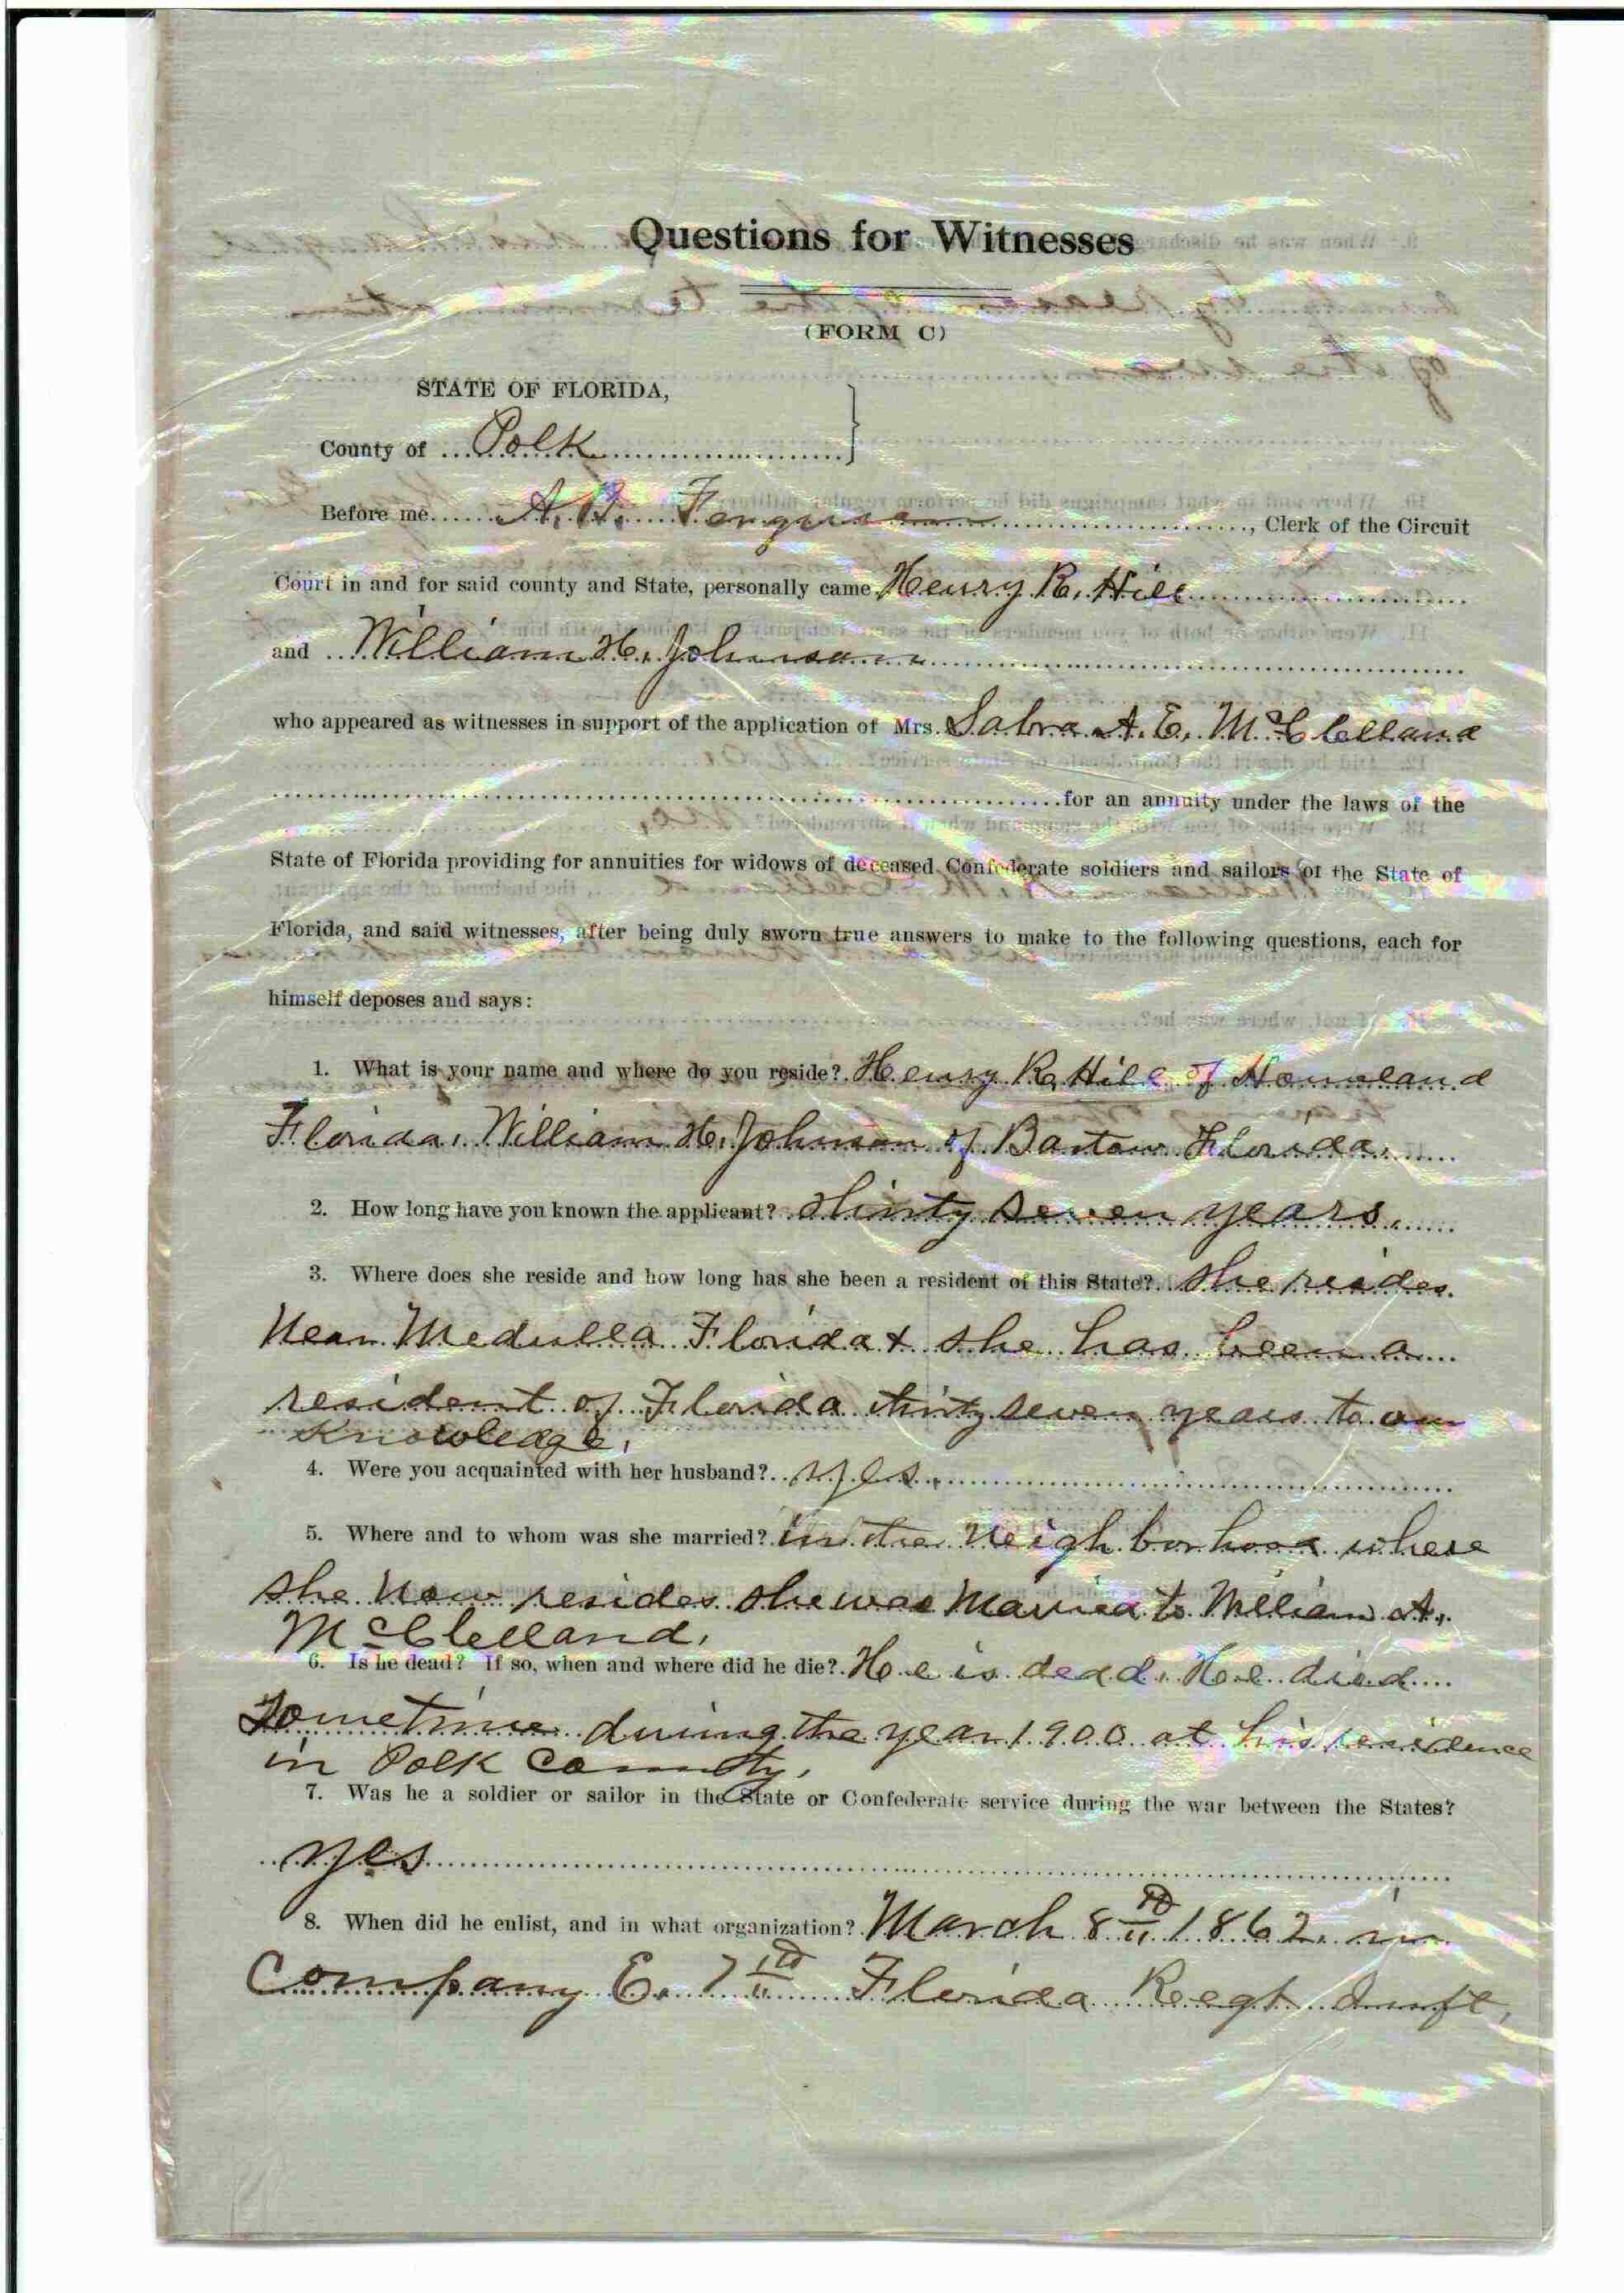 Questions for Witnesses
(FORM C)
STATE OF FLORIDA,
County of Polk
Before me A. B. Ferguson, Clerk of the Circuit
Court in and for said county and State, personally came Henry R. Hill
and William H. Johnson
who appeared as witnesses in support of the application of Mrs. Sabra A. E. McClelland
for an annuity under the laws of the
State of Florida providing for annuities for widows of deceased Confederate soldiers and sailors of the State of
Florida, and said witnesses, after being duly sworn true answers to make to the following questions, each for
himself deposes and says:
1. What is your name and where do you reside? Henry R. Hill of Homeland
Florida. William H. Johnson of Bartow Florida.
2. How long have you known the applicant? thirty seven years.
3. Where does she reside and how long has she been a resident of this State? She resides
Near Medulla Florida & she has been a
resident of Florida thirty seven years to our
Knowledge.
4. Were you acquainted with her husband? yes.
5. Where and to whom was she married? in the Neighborhood where
she Now resides she was Married to William A.
McClelland.
6. Is he dead? If so, when and where did he die? He is dead. He died
Sometime during the year 1900 at his residence
in Polk County.
7. Was he a soldier or sailor in the State or Confederate service during the war between the States?
yes
8. When did he enlist, and in what organization? March 8th 1862 in
Company E. 7th Florida Regt Inft,